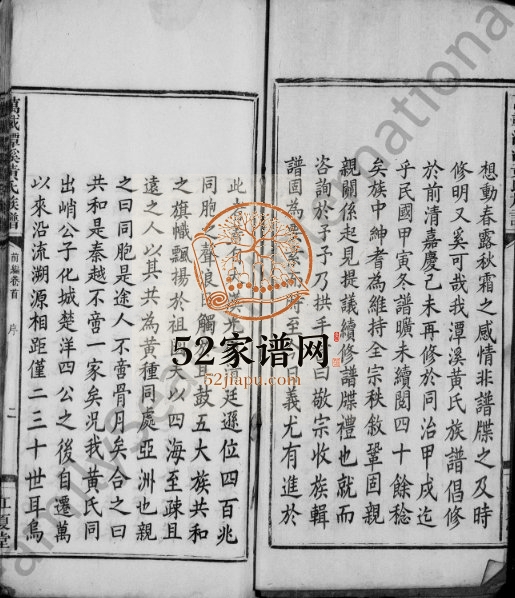 想動春露秋霜之感情非譜牒之及時
修明又奚可哉我潭溪黃氏族譜倡修
於前清嘉慶己未再修於同治甲戌迄
乎民國甲寅冬譜曠未續閱四十餘稔
矣族中紳耆為維持全宗秩敘鞏固親
親關係起見提議續修譜牒禮也就而
咨詢於予予乃拱手 曰敬宗收族輯
譜固為要 至 日義尤有進於
此 廷遜位四百兆
同胞之聲浪 觸 耳鼓五大族共和
之旗幟飄揚於祖 夫以四海至疎且
遠之人以其共為黃種同處亞洲也親
之曰同胞是途人不啻骨月矣合之曰
共和是秦越不啻一家矣況我黃氏同
出峭公子化城楚洋四公之後自遷萬
以來沿流溯源相距僅二三十世耳烏
萬載潭溪黃氏族譜
前編卷首 序
二
江夏堂
52家谱网
52jiapu.com
FamilySearch International